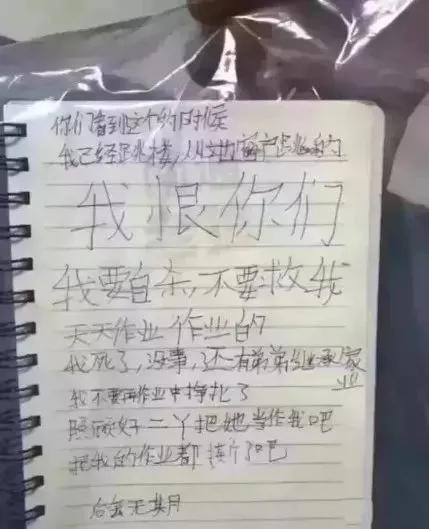 你们看到这个的时候
我已经跳楼,从这地窗户跳的
我恨你们
我要自杀,不要救我
天天作业 作业的
我死了,没事,还有弟弟继承家业
我不要再作业中挣扎了
照顾好二丫把她当作我吧
把我的作业都撕了吧
后会无期